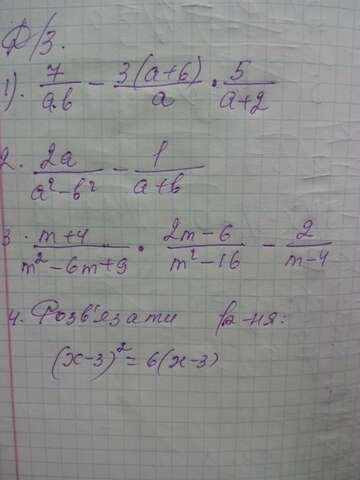 Д/З.
1). 7/(a·b) − 3(a+b)/a · 5/(a+2)
2. 2a/(a²−b²) − 1/(a+b)
3. (m+4)/(m²−6m+9) · (2m−6)/(m²−16) − 2/(m−4)
4. Розв'язати р-ня:
(x−3)² = 6(x−3)